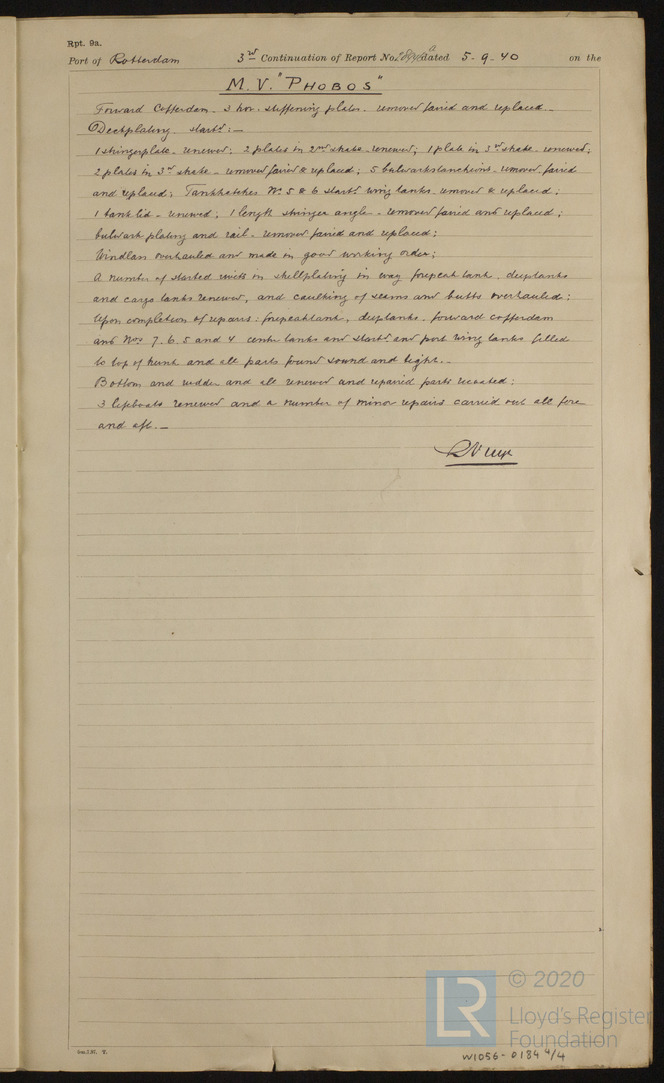 Rpt. 9a.
Port of Rotterdam 3rd Continuation of Report No. dated 5-9-40 on the
M.V. "PHOBOS"
Forward Cofferdam - 3 hor. stiffening plates - removed faired and replaced -
Deckplating starbd: -
1 stringerplate - renewed; 2 plates in 2nd strake - renewed; 1 plate in 3rd strake - renewed;
2 plates in 3rd strake - removed faired & replaced; 5 bulwarkstancheons - removed, faired
and replaced; Tankhatches No 5 & 6 starbd wing tanks removed & replaced;
1 tank lid - renewed; 1 length stringer angle - removed faired and replaced;
bulwark plating and rail - removed faired and replaced;
Windlass overhauled and made in good working order;
A number of started rivets in shellplating in way forepeak tank, deeptanks
and cargo tanks renewed, and caulking of seams and butts overhauled;
Upon completion of repairs: forepeaktank, deeptanks, forward cofferdam
and Nos 7. 6. 5 and 4 centre tanks and starbd and port wing tanks filled
to top of trunk and all parts found sound and tight. -
Bottom and rudder and all renewed and repaired parts recoated;
3 lifeboats renewed and a number of minor repairs carried out all fore
and aft. -
LR
© 2020
Lloyd's Register
Foundation
W1056-0184 4/4